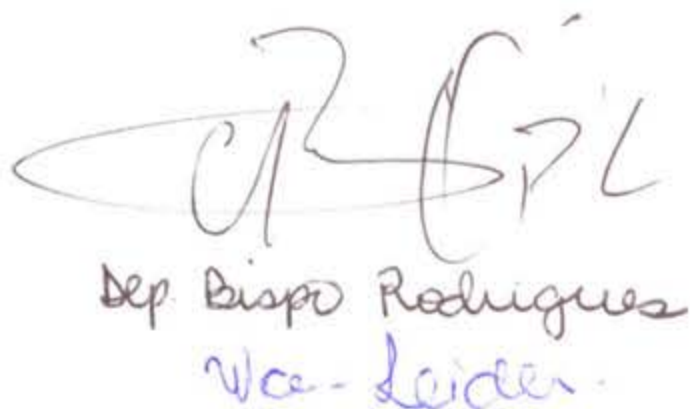 PL
Dep. Bispo Rodrigues
Vice-Leider.